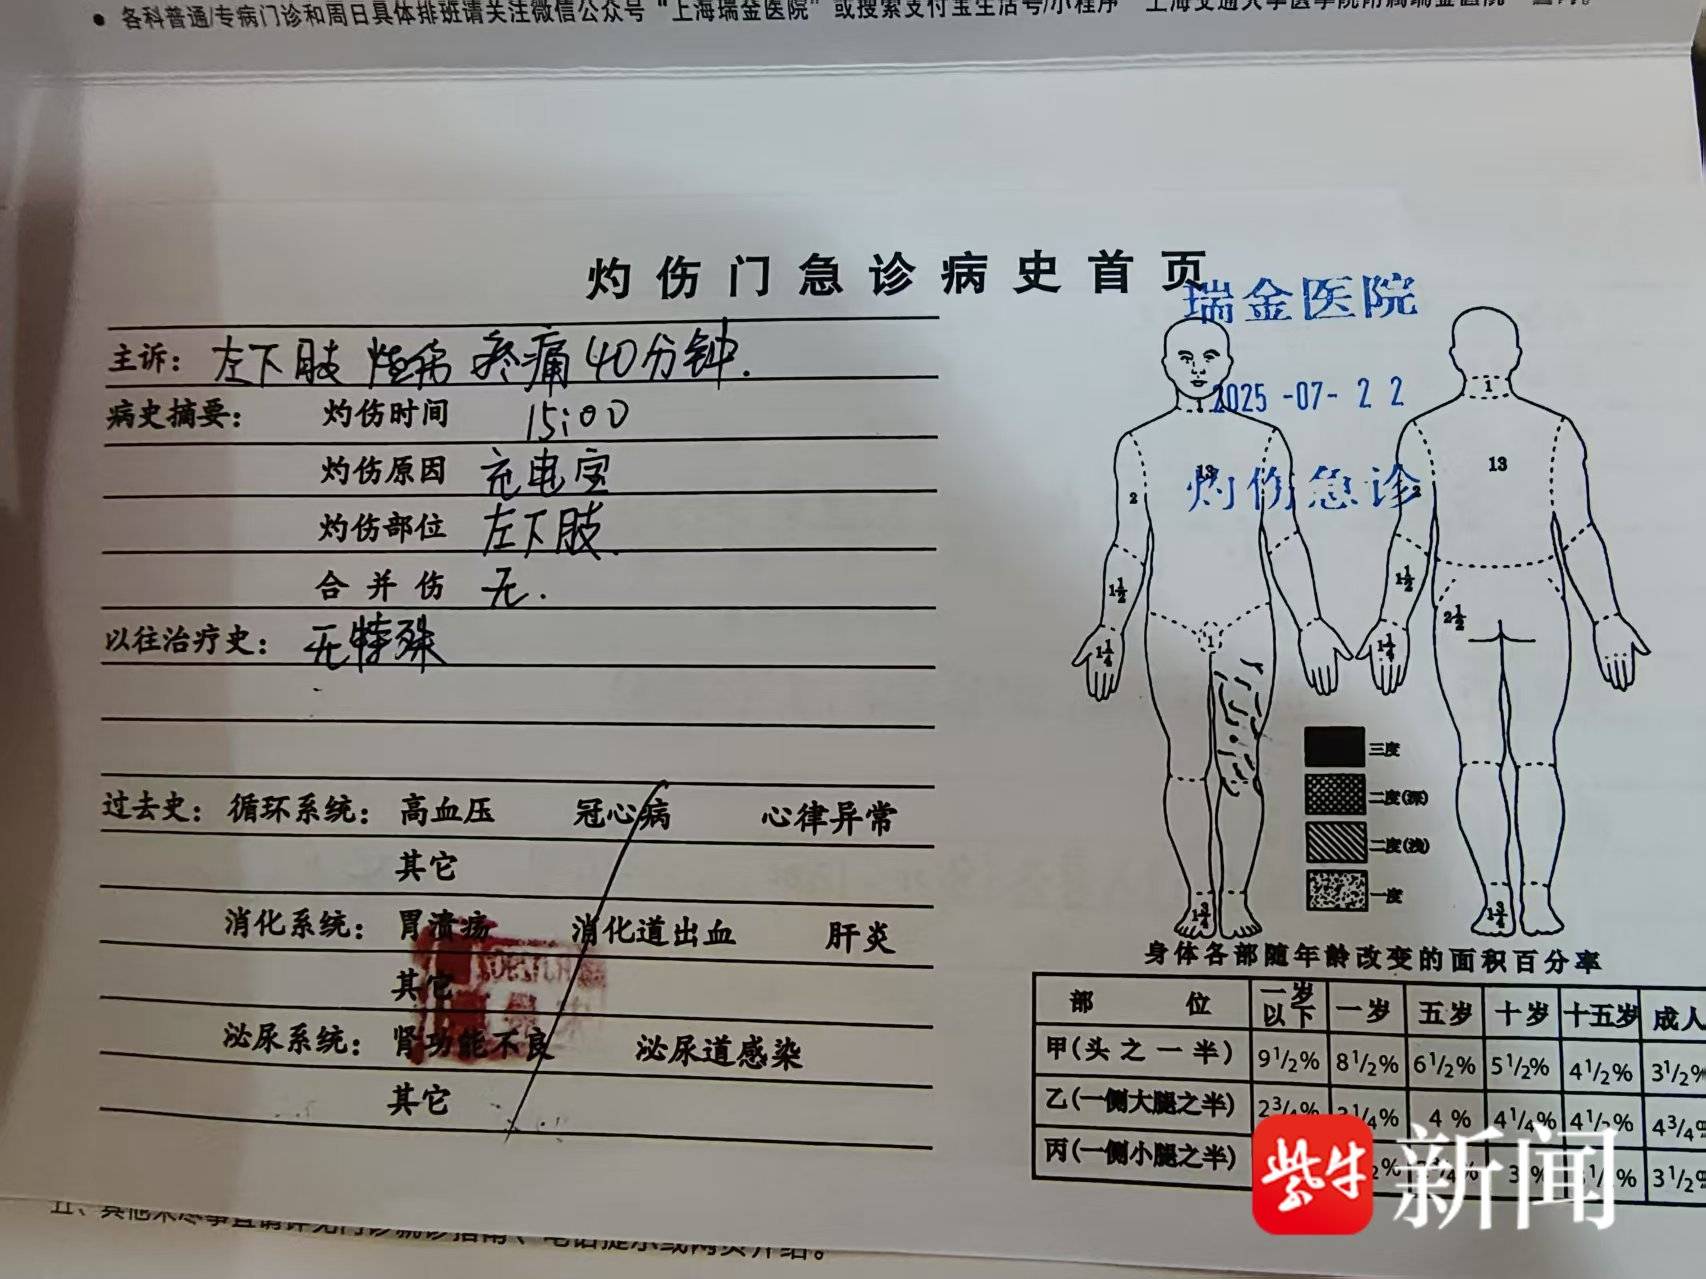 各科普通/专病门诊和周日具体排班请关注微信公众号“上海瑞金医院”或搜索支付宝生活号/小程序“上海交通大学医学院附属瑞金医院”查询。
灼伤门急诊病史首页
瑞金医院
2025-07-22
灼伤急诊
主诉：左下肢烧伤疼痛40分钟.
病史摘要： 灼伤时间 15:00
灼伤原因 充电宝
灼伤部位 左下肢.
合并伤 无.
以往治疗史： 无特殊
过去史：循环系统： 高血压 冠心病 心律异常
其它
消化系统： 胃溃疡 消化道出血 肝炎
其它
泌尿系统： 肾功能不良 泌尿道感染
其它
1 1
13 13
2 2
1½ 1½
1 2½
1¼ 1¼
三度
二度(深)
二度(浅)
一度
1¾ 1¾
身体各部随年龄改变的面积百分率
部位 一岁以下 一岁 五岁 十岁 十五岁 成人
甲(头之一半) 9½% 8½% 6½% 5½% 4½% 3½%
乙(一侧大腿之半) 2¾% 4% 4¼% 4½% 4¾%
丙(一侧小腿之半) 3% 3½%
紫牛新闻